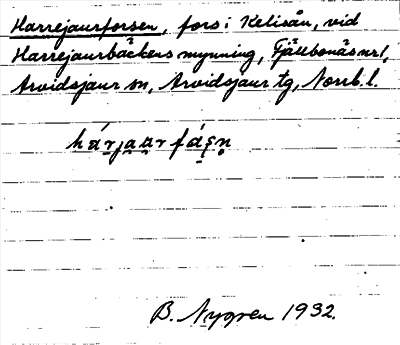 Harrejaurforsen, fors i Kelisån, vid
Harrejaurbäckens mynning, Fjällbonäs nr 1,
Arvidsjaur sn, Arvidsjaur tg, Norrb. l.
hárjaar fásn
B. Nygren 1932.